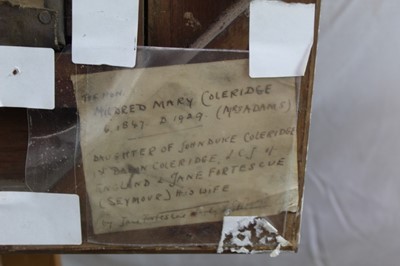 THE HON.
MILDRED MARY COLERIDGE
B. 1847. D 1929. (MRS ADAMS)
DAUGHTER OF JOHN DUKE COLERIDGE
1st BARON COLERIDGE, L.C.J. of
ENGLAND & JANE FORTESCUE
(SEYMOUR) HIS WIFE